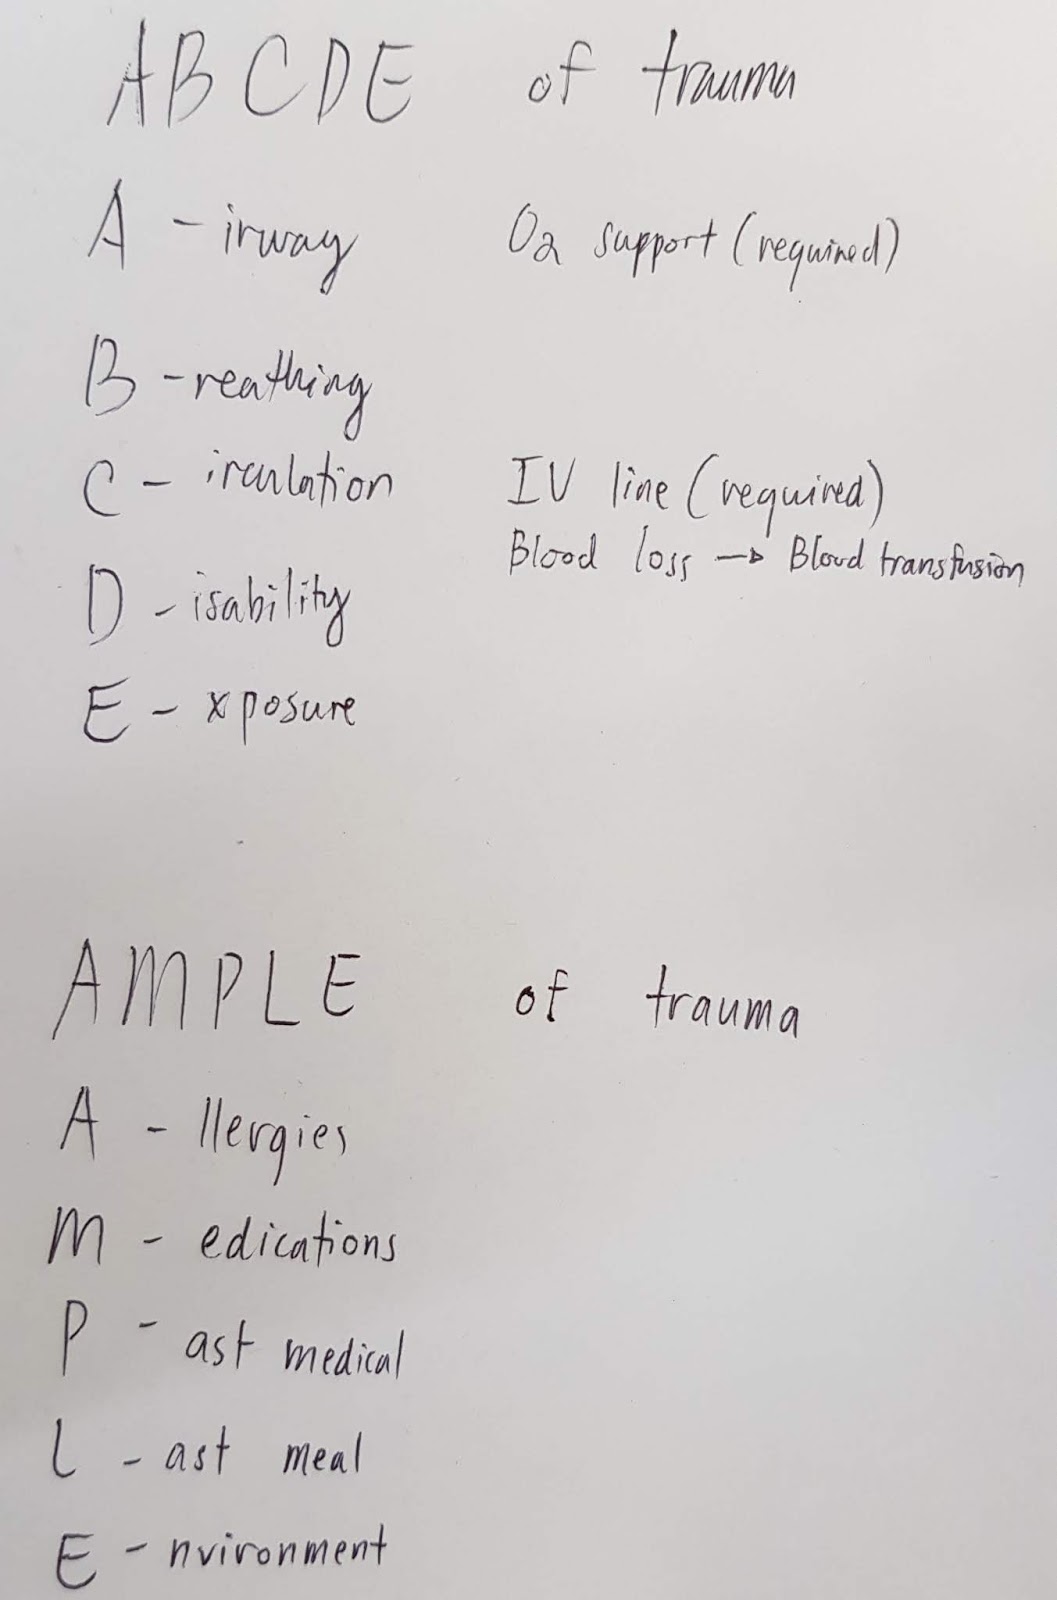 ABCDE of trauma
A - irway O2 support (required)
B - reathing
C - irculation IV line (required)
Blood loss → Blood transfusion
D - isability
E - xposure
AMPLE of trauma
A - llergies
M - edications
P - ast medical
L - ast meal
E - nvironment